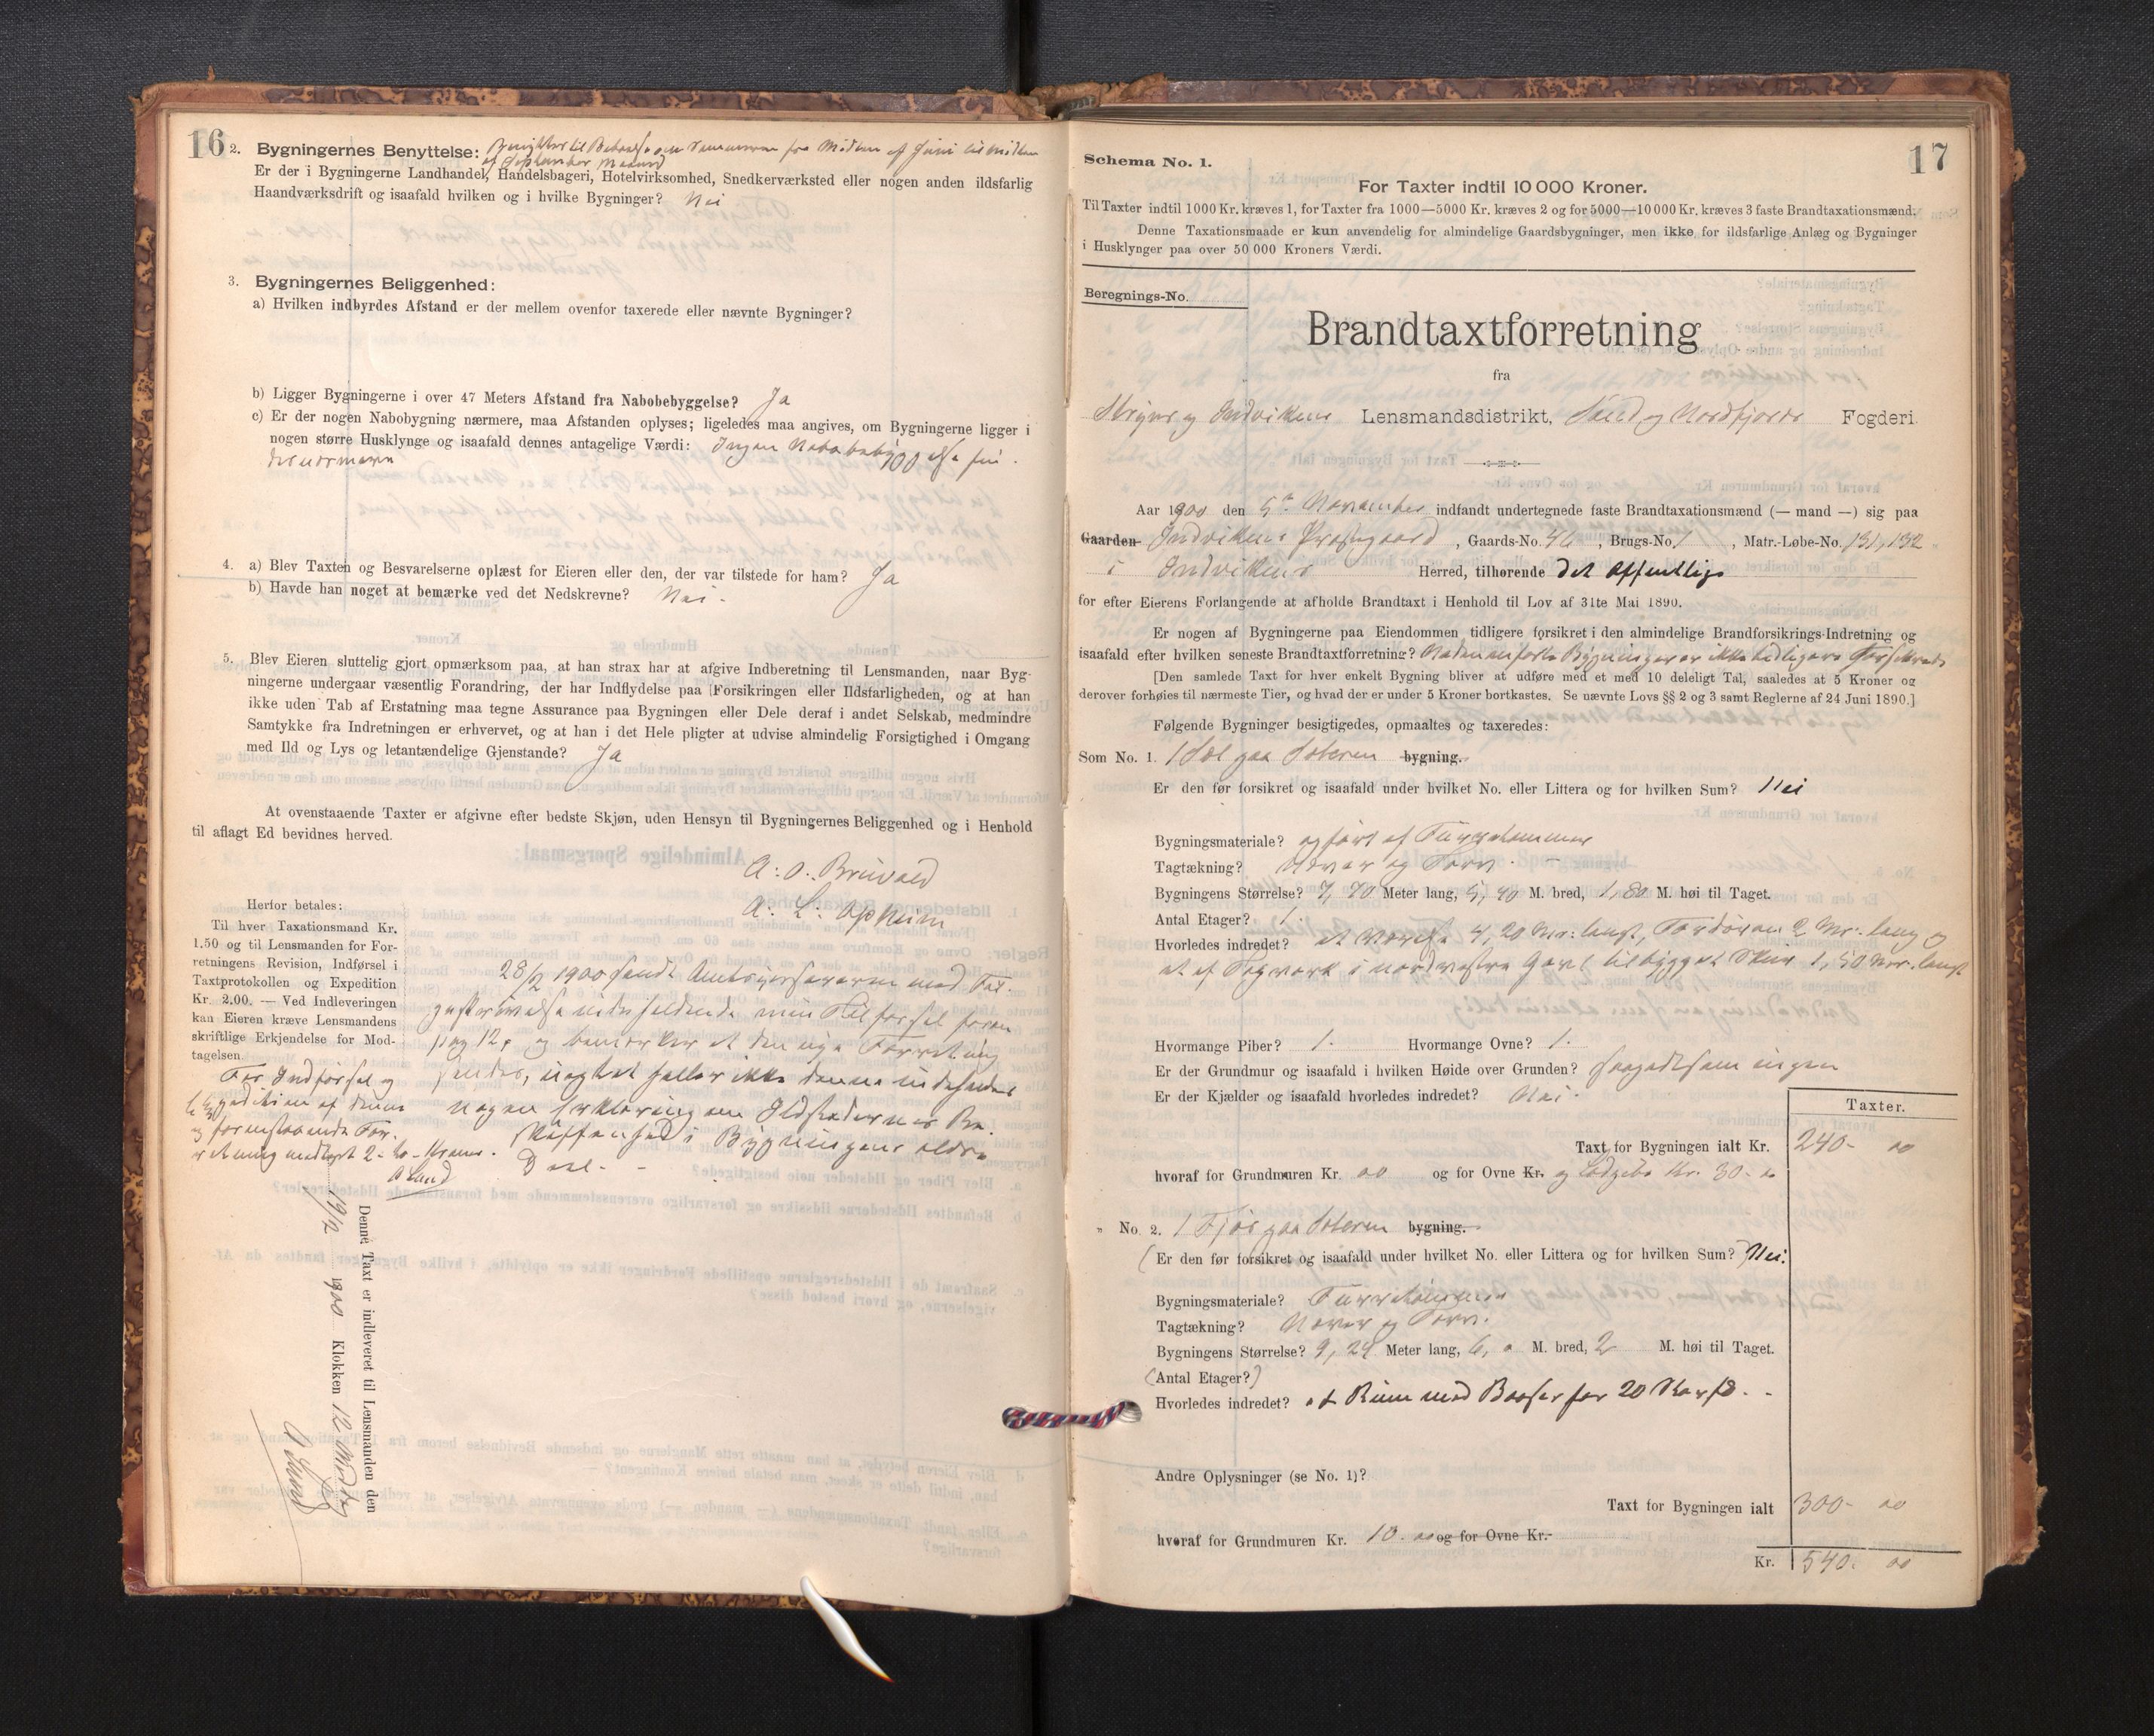 16
2. Bygningernes Benyttelse: Benyttes til Beboelse om Sommeren fra Midten af Juni til Midten
af September Maaned
Er der i Bygningerne Landhandel, Handelsbageri, Hotelvirksomhed, Snedkerværksted eller nogen anden ildsfarlig
Haandværksdrift og isaafald hvilken og i hvilke Bygninger? Nei
3. Bygningernes Beliggenhed:
a) Hvilken indbyrdes Afstand er der mellem ovenfor taxerede eller nævnte Bygninger?
b) Ligger Bygningerne i over 47 Meters Afstand fra Nabobebyggelse? Ja
c) Er der nogen Nabobygning nærmere, maa Afstanden oplyses; ligeledes maa angives, om Bygningerne ligger i
nogen større Husklynge og isaafald dennes antagelige Værdi: Ingen
4. a) Blev Taxten og Besvarelserne oplæst for Eieren eller den, der var tilstede for ham? Ja
b) Havde han noget at bemærke ved det Nedskrevne? Nei.
5. Blev Eieren sluttelig gjort opmærksom paa, at han strax har at afgive Indberetning til Lensmanden, naar Byg-
ningerne undergaar væsentlig Forandring, der har Indflydelse paa Forsikringen eller Ildsfarligheden, og at han
ikke uden Tab af Erstatning maa tegne Assurance paa Bygningen eller Dele deraf i andet Selskab, medmindre
Samtykke fra Indretningen er erhvervet, og at han i det Hele pligter at udvise almindelig Forsigtighed i Omgang
med Ild og Lys og letantændelige Gjenstande? Ja
At ovenstaaende Taxter er afgivne efter bedste Skjøn, uden Hensyn til Bygningernes Beliggenhed og i Henhold
til aflagt Ed bevidnes herved.
A. O. Bruvold
A. L. Opheim
Herfor betales:
Til hver Taxationsmand Kr.
1.50 og til Lensmanden for For-
retningens Revision, Indførsel i
Taxtprotokollen og Expedition
Kr. 2.00. — Ved Indleveringen
kan Eieren kræve Lensmandens
skriftlige Erkjendelse for Mod-
tagelsen.
For Indførsel og
Expedition af denne
og foranstaaende For-
retning modtaget 2 - to - Kroner.
A Lund
28/12 1900 sendt Amtsværferen med
pag 12, og bemærker at den nye Forretning
sendes, heller ikke denne indeholder
nogen Erklæring om Ildstedernes Be-
skaffenhed i Bygningens ældre
Deel.
Denne Taxt er indleveret til Lensmanden den
19/12 1900 Klokken 12 Middag
A Lund
17
Schema No. 1.
For Taxter indtil 10 000 Kroner.
Til Taxter indtil 1000 Kr. kræves 1, for Taxter fra 1000—5000 Kr. kræves 2 og for 5000—10 000 Kr. kræves 3 faste Brandtaxationsmænd.
Denne Taxationsmaade er kun anvendelig for almindelige Gaardsbygninger, men ikke for ildsfarlige Anlæg og Bygninger
i Husklynger paa over 50 000 Kroners Værdi.
Beregnings-No.
Brandtaxtforretning
fra
Stryns og Indvikens Lensmandsdistrikt, Sønd og Nordfjords Fogderi
Aar 1900 den 5te November indfandt undertegnede faste Brandtaxationsmænd (— mand —) sig paa
Gaarden Indvikens Præstegaard, Gaards-No. 46, Brugs-No. 1, Matr.-Løbe-No. 131, 132
i Indvikens Herred, tilhørende det Offentlige
for efter Eierens Forlangende at afholde Brandtaxt i Henhold til Lov af 31te Mai 1890.
Er nogen af Bygningerne paa Eiendommen tidligere forsikret i den almindelige Brandforsikrings-Indretning og
isaafald efter hvilken seneste Brandtaxtforretning? Nedenanførte Bygninger er ikke tidligere Forsikrede
[Den samlede Taxt for hver enkelt Bygning bliver at udføre med et med 10 deleligt Tal, saaledes at 5 Kroner og
derover forhøies til nærmeste Tier, og hvad der er under 5 Kroner bortkastes. Se nævnte Lovs §§ 2 og 3 samt Reglerne af 24 Juni 1890.]
Følgende Bygninger besigtigedes, opmaaltes og taxeredes:
Som No. 1. 1 Sel paa Sæteren bygning.
Er den før forsikret og isaafald under hvilket No. eller Littera og for hvilken Sum? Nei
Bygningsmateriale? opført af Furretømmer
Tagtækning? Næver og Torv.
Bygningens Størrelse? 7,70 Meter lang, 5,40 M. bred, 1,80 M. høi til Taget.
Antal Etager? 1.
Hvorledes indredet? et Værelse 4,20 Mtr. langt, Fordøren 2 Mtr. lang og
et af Tegværk i nordvestre Gavl tilbygget Skur 1,50 Mtr. langt
Hvormange Piber? 1. Hvormange Ovne? 1.
Er der Grundmur og isaafald i hvilken Høide over Grunden? saagodtsom ingen
Er der Kjælder og isaafald hvorledes indredet? Nei.
Taxter.
Taxt for Bygningen ialt Kr. 240- 00
hvoraf for Grundmuren Kr. 00 og for Ovne Kr. og Kr. 30- 00
„ No. 2. 1 Fjøs paa Sæteren bygning.
(Er den før forsikret og isaafald under hvilket No. eller Littera og for hvilken Sum? Nei.
Bygningsmateriale? Furretømmer
Tagtækning? Næver og Torv.
Bygningens Størrelse? 9,24 Meter lang, 6,0 M. bred, 2 M. høi til Taget.
(Antal Etager?)
Hvorledes indredet? et Rum med Baaser for 20 Kør.
Andre Oplysninger (se No. 1)?
Taxt for Bygningen ialt 300- 00
hvoraf for Grundmuren Kr. 10. 00 og for Ovne Kr.
Kr. 540. 00